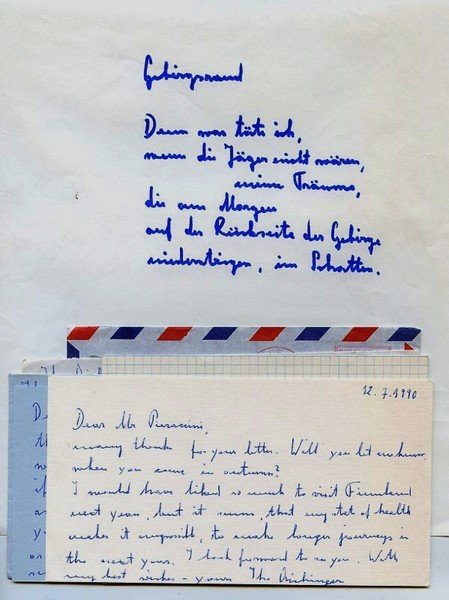 Gebirgsrand
Denn was täte ich,
wenn die Jäger nicht wären,
meine Träume,
die am Morgen
auf der Rückseite der Gebirge
niedersteigen, im Schatten.
12.7.1990
Dear Mr
many thanks for your letter. Will you let me know,
when you come in autumn?
I would have liked so much to visit Finnland
next year, but it seems, that my state of health
makes it impossible, to make longer journeys in
the next years. I look forward to see you. With
my best wishes - yours Ilse Aichinger